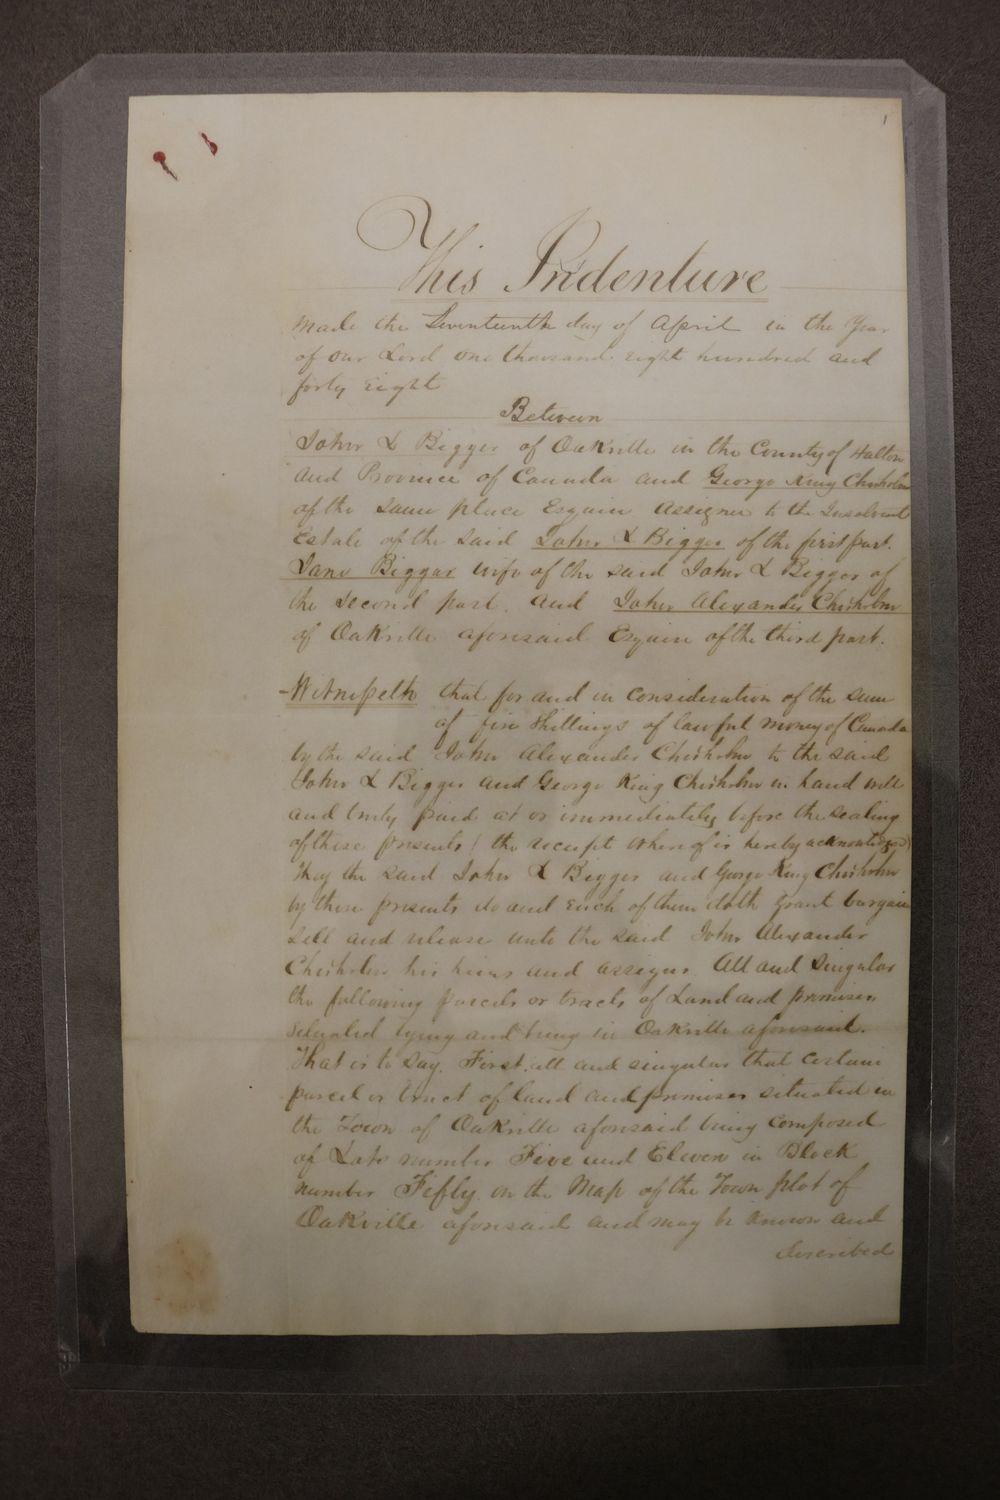 1
This Indenture
Made the Seventeenth day of April in the Year
of our Lord one thousand eight hundred and
forty Eight
Between
John L Bigger of Oakville in the County of Halton
and Province of Canada and George King Chisholm
of the same place Esquire Assignee to the Insolvent
Estate of the said John L Bigger of the first part.
Jane Biggar wife of the said John L Bigger of
the second part. and John Alexander Chisholm
of Oakville aforesaid Esquire of the third part.
Witnesseth that for and in consideration of the sum
of five Shillings of lawful money of Canada
by the said John Alexander Chisholm to the said
John L Bigger and George King Chisholm in hand well
and truly paid at or immediately before the sealing
of these presents (the receipt whereof is hereby acknowledged)
they the said John L Bigger and George King Chisholm
by these presents do and each of them doth grant bargain
sell and release unto the said John Alexander
Chisholm his heirs and assigns. All and Singular
the following parcels or tracts of Land and premises
situated lying and being in Oakville aforesaid.
That is to say. First. all and singular that certain
parcel or tract of land and premises situated in
the Town of Oakville aforesaid being composed
of Lots number Five and Eleven in Block
number Fifty on the Map of the Town plot of
Oakville aforesaid and may be known and
described